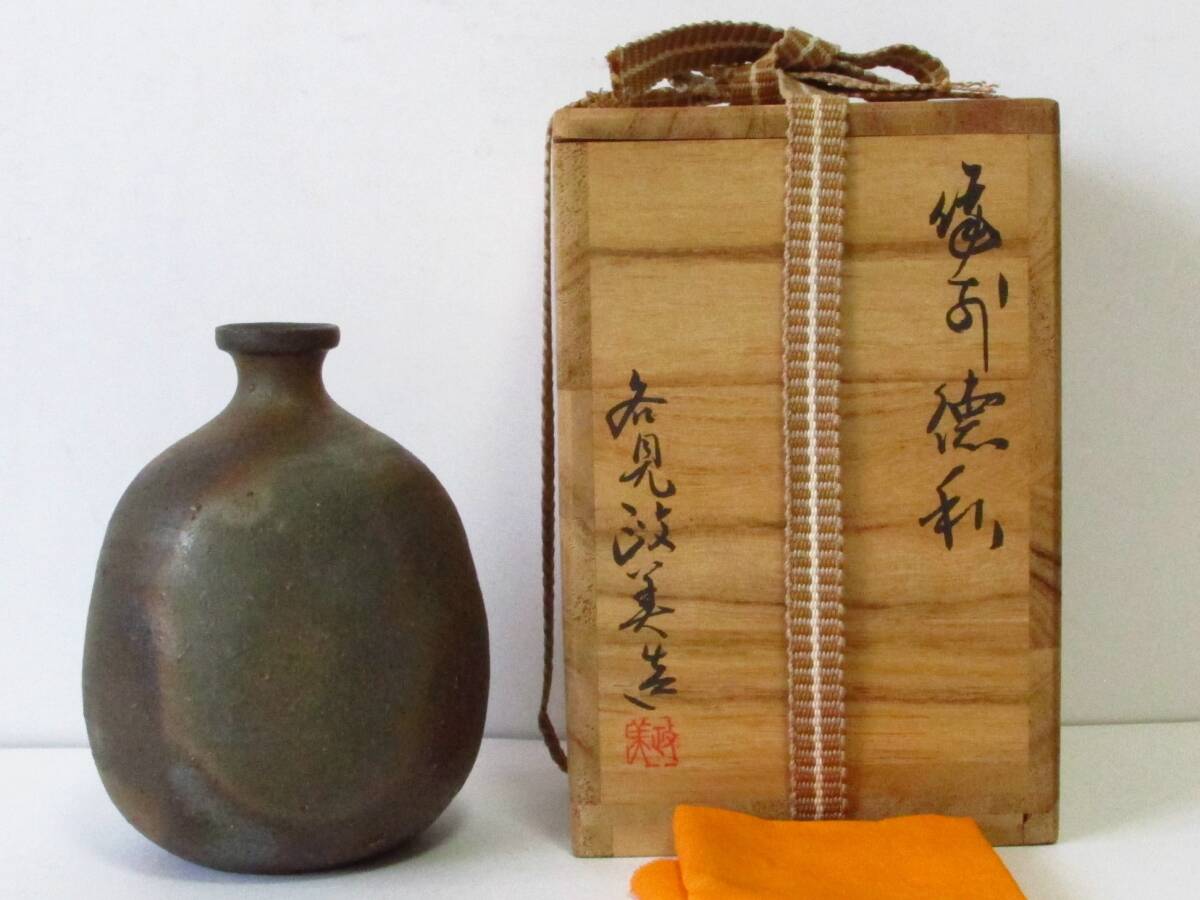 備前徳利
各見政美造
政美